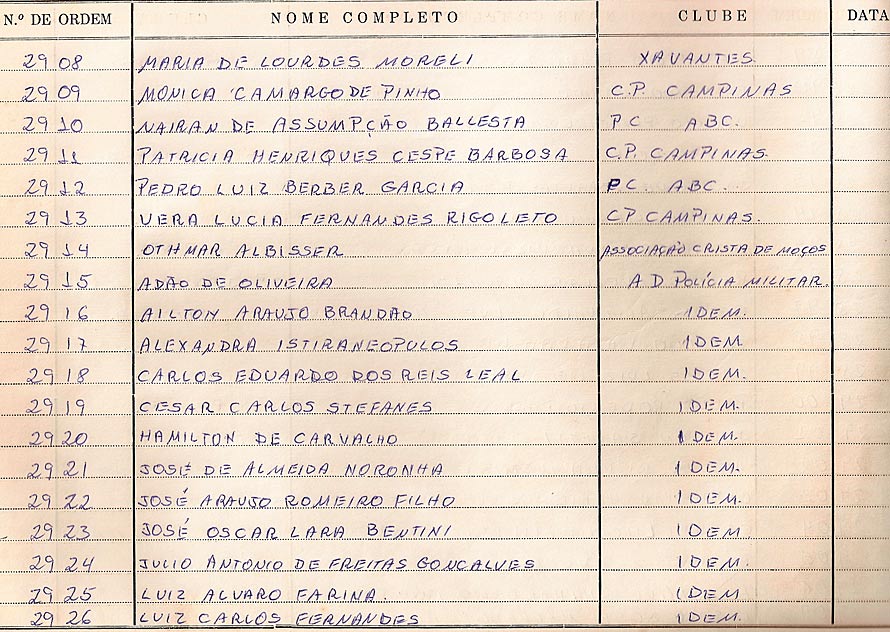 N.º DE ORDEM NOME COMPLETO CLUBE DATA
29 08 MARIA DE LOURDES MORELI XAVANTES
29 09 MONICA CAMARGO DE PINHO C.P. CAMPINAS
29 10 NAIRAN DE ASSUMPÇÃO BALLESTA P C ABC.
29 11 PATRICIA HENRIQUES CESPE BARBOSA C.P. CAMPINAS.
29 12 PEDRO LUIZ BERBER GARCIA P C. ABC.
29 13 VERA LUCIA FERNANDES RIGOLETO CP CAMPINAS.
29 14 OTHMAR ALBISSER ASSOCIAÇÃO CRISTA DE MOÇOS
29 15 ADÃO DE OLIVEIRA A D POLÍCIA MILITAR.
29 16 AILTON ARAUJO BRANDÃO IDEM.
29 17 ALEXANDRA ISTIRANEOPULOS IDEM
29 18 CARLOS EDUARDO DOS REIS LEAL IDEM.
29 19 CESAR CARLOS STEFANES IDEM.
29 20 HAMILTON DE CARVALHO IDEM.
29 21 JOSÉ DE ALMEIDA NORONHA IDEM.
29 22 JOSÉ ARAUJO ROMEIRO FILHO IDEM.
29 23 JOSÉ OSCAR LARA BENTINI IDEM
29 24 JULIO ANTONIO DE FREITAS GONCALVES IDEM.
29 25 LUIZ ALVARO FARINA. IDEM
29 26 LUIZ CARLOS FERNANDES IDEM.